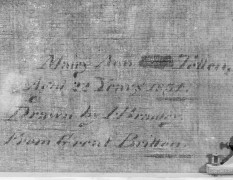 Mary Ann Totten,
Aged 22 Years 1834.
Drawn by J Bradley
From Great Britton.